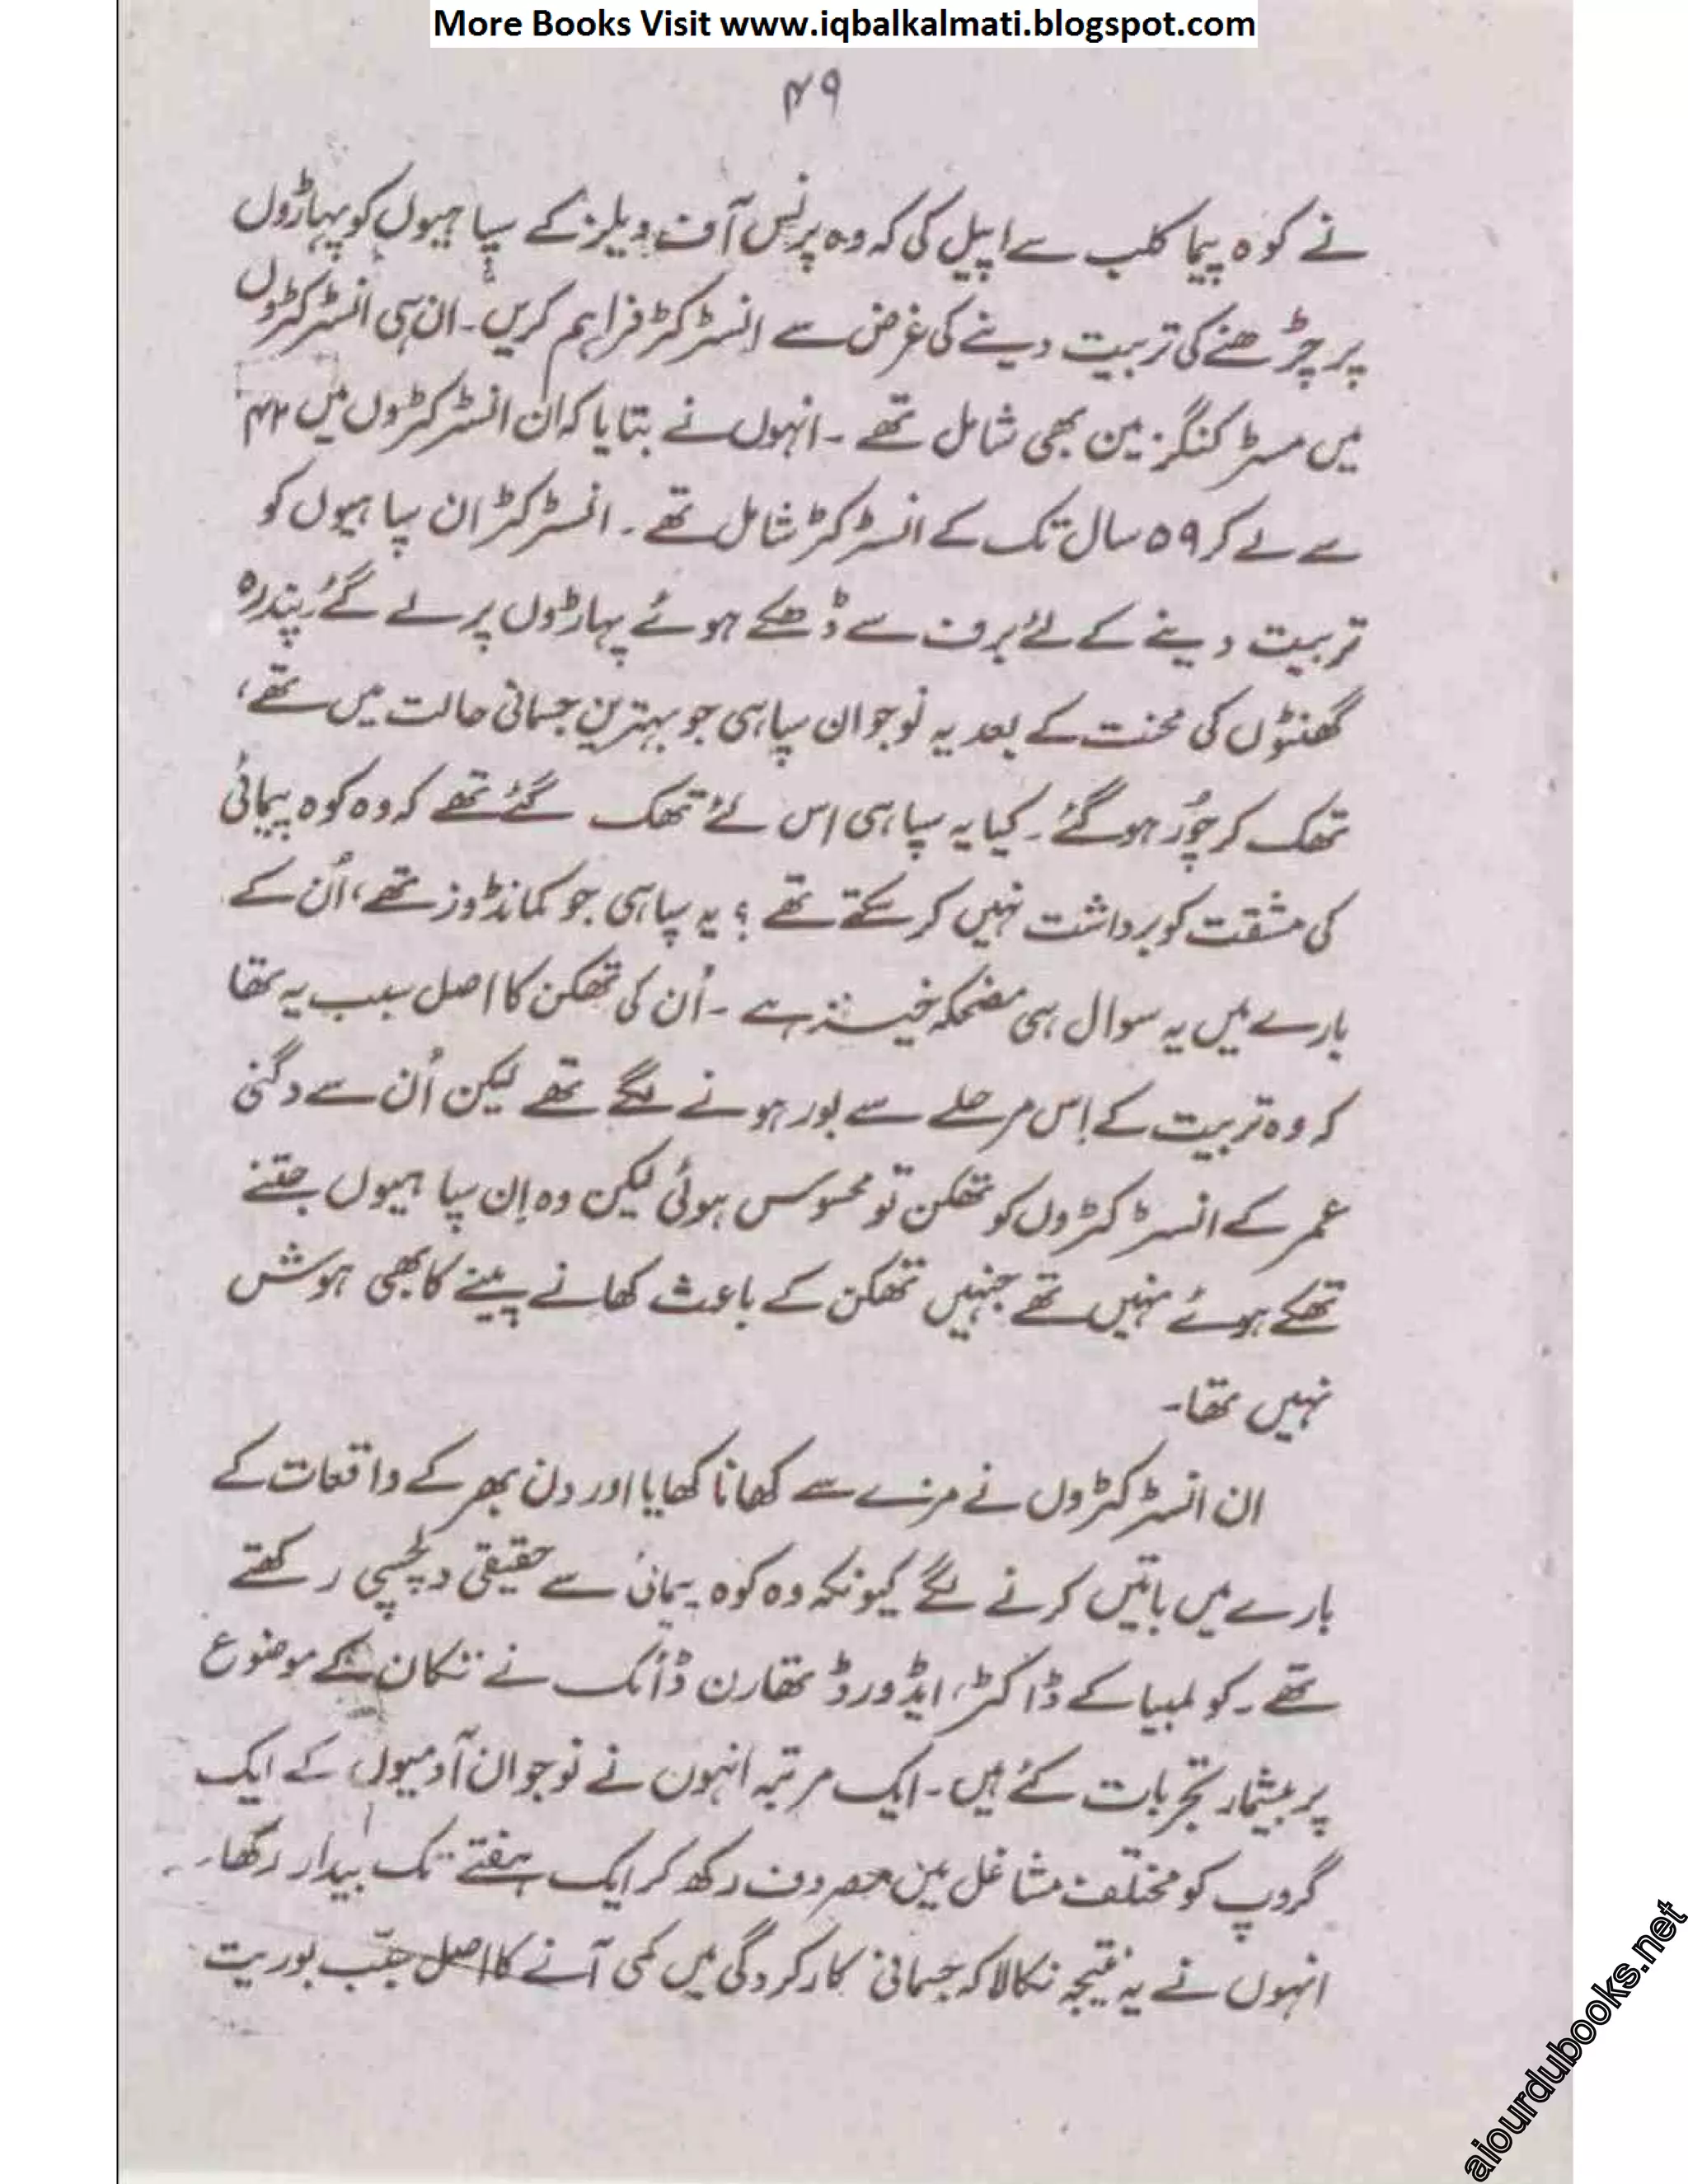 More Books Visit www.iqbalkalmati.blogspot.com
۴۹
نے کوہ پیما کلب سے اپیل کی کہ وہ پرنس آف ویلز کے سپاہیوں کو پہاڑوں
پر چڑھنے کی تربیت دینے کی غرض سے انسٹرکٹر فراہم کریں۔ ان ہی انسٹرکٹروں
میں مسٹر کنگز مین بھی شامل تھے۔ انہوں نے بتایا کہ ان انسٹرکٹروں میں ۴۲
سے لے کر ۵۹ سال تک کے انسٹرکٹر شامل تھے۔ انسٹرکٹر ان سپاہیوں کو
تربیت دینے کے لئے برف سے ڈھکے ہوئے پہاڑوں پر لے گئے۔ پندرہ
گھنٹوں کی محنت کے بعد یہ نوجوان سپاہی جو بہترین جسمانی حالت میں تھے،
تھک کر چُور ہو گئے۔ کیا یہ سپاہی اس لئے تھک گئے تھے کہ وہ کوہ پیمائی
کی مشقت کو برداشت نہیں کر سکتے تھے؟ یہ سپاہی جو کمانڈوز تھے، اُن کے
بارے میں یہ سوال ہی مضحکہ خیز ہے۔ اُن کی تھکن کا اصل سبب یہ تھا
کہ وہ تربیت کے اِس مرحلے سے بور ہونے لگے تھے لیکن اُن سے دگنی
عمر کے انسٹرکٹروں کو تھکن تو محسوس ہوئی لیکن وہ اِن سپاہیوں جتنے
تھکے ہوئے نہیں تھے جنہیں تھکن کے باعث کھانے پینے کا بھی ہوش
نہیں تھا۔
ان انسٹرکٹروں نے مزے سے کھانا کھایا اور دن بھر کے واقعات کے
بارے میں باتیں کرنے لگے کیونکہ وہ کوہ پیمائی سے حقیقی دلچسپی رکھتے
تھے۔ کولمبیا کے ڈاکٹر، ایڈورڈ تھارن ڈائک نے تکان کے موضوع
پر بیشمار تجربات کئے ہیں۔ ایک مرتبہ انہوں نے نوجوان آدمیوں کے ایک
گروپ کو مختلف مشاغل میں مصروف رکھ کر ایک ہفتے تک بیدار رکھا۔
انہوں نے یہ نتیجہ نکالا کہ جسمانی کارکردگی میں کمی آنے کا اصل سبب بوریت
aiourdubooks.net